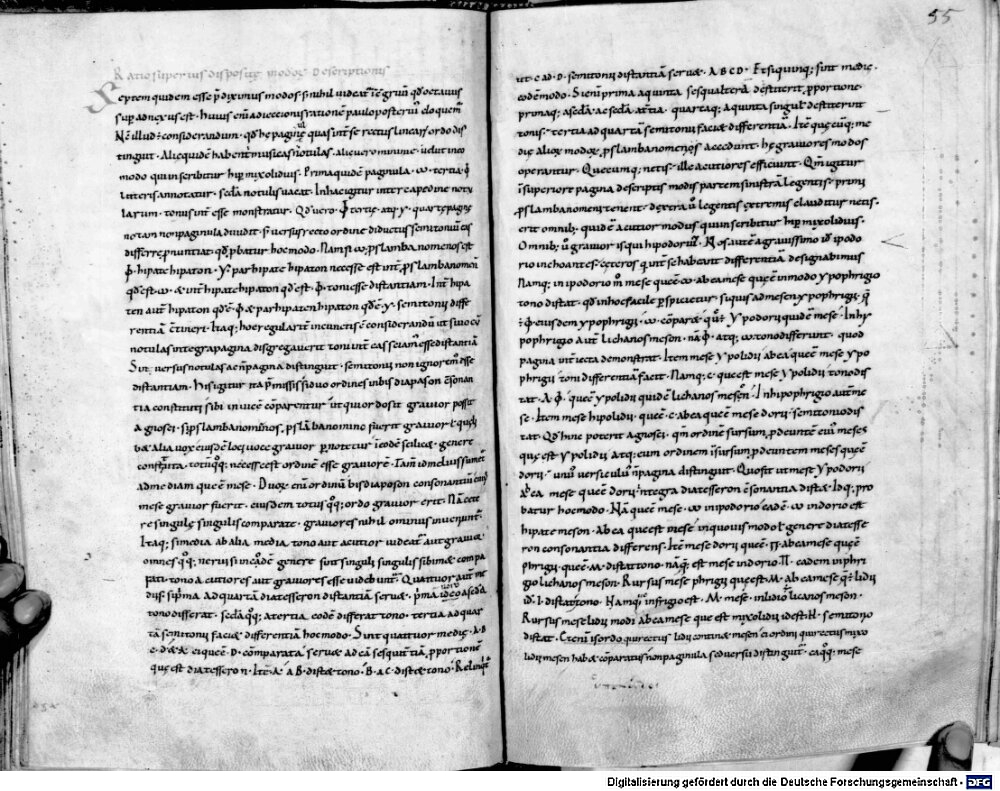 Ratio superius dispositę modoꝝ descriptionis
Septem quidem esse p̄diximus modos s; nihil uideat᷑
sup adnexus est. huius eni adiecionis rationē paulo posteriꝰ eloquem̄
considerandum. qd he paginę quas int̄ se rectus linearꝭ ordo dis
tingunt. Alię quidē habent musicas notulas. alię uero minime. ut
modo qui inscribitur hipmixolidius. Prima quidē paginula. ω. tertia. ϕ
litteris annotatur. seda notulis uacat. In hac igitur intercapedine notu
larum. tonus int̄ esse monstratur. Qd uero. ϕ tertię atq; y. quartę paginę
notam non paginula diuidit. s; uersus recto ordine diductus semitoniū eis
differre pnuntiat. qd pbatur hoc modo. Nam si ω. pslambanomenos est
ϕ. hipate hipaton. y. parhipate hipaton necesse est int̄ pslambanomen
qd est. ω. & int̄ hipate hipaton qd est. ϕ. toni esse distantiam. Int̄ hipa
ten aut̄ hipaton qd ē. ϕ. & parhipaten hipaton qd ē y. semitonii diffe
rentiā ētineri. Itaq; hoc regularit̄ in cunctis ē considerandū ut si uo cū
notulas integra pagina disgregauerit toni int̄ eas sciam esse distantiā
Sin uersus notulas ac n̄ pagina distinguit. semitonii non ignorem esse
distantiam. His igitur ita p̄missis si duo ordines in bis diapason ēsonan
tia constituti sibi inuicē cōparentur ut qui eor sit grauior possit
agnosci. si pslambanomenos, pslābanomino fuerit grauior
ba alia uox eiusdē loci uoce grauior pnotetur in eodē scilicę genere
constituta. totuq; necesse est ordinē esse grauiorē. Tam id melius sumet̄
ad mediam que ē mese. Duoꝝ eni ordinū bis diapason consonantiū cuiꝰ
mese grauior fuerit. eiusdem totus qq; ordo grauior erit. Nā cete
re singulę singulis comparate. grauiores nihilominus inuenunt᷑
Itaq; si media ab alia media, tono aut acutior uideat᷑ aut grauior
omnes qq; nerui si in eadē genere sint singuli singulis sibimę compa
rati. tono acutiores aut grauiores esse uidebunt᷑. Quattuor aut̄ me
diis. si prima ad quartā diatesseron distantiā seruę. prima ideo a seda
tono differat. seda qq; a tertia. eodē differat tono. tertia ad quar
tā semitonii faciat differentiā hoc modo. Sint quattuor medię. A B
C. D. & A ei quę ē. D. comparata seruę ad eā sesqui tertiā, pportionē
quę est diatesseron. Itē A ā B. distet tono. B. a C. distet tono. Relinqt̄
55
ut C ad D. semitonii distantiā seruę. A B C D. Et si quinq; sint medię.
eodē modo. Si eni prima a quinta sesqualterā destiterit, pportione
primaq; a sedā. ac sedā a tertia. quartaq; a quinta singulꝭ destiterint
tonis. tertia ad quartā semitonii faciat differentiā. Itē quę cunq; me
dię alioꝝ modoꝝ pslambanomenos accedunt. hę grauiores modos
operantur. Quecunq; netis. ille acutiores efficiunt. Qm igitur
in superiore pagina descriptis modis partem sinistrā legentis. primi
pslambanomeni tenent. dextrā ū legentis extremis clauditur netis.
erit omnib; quidē acutior modus qui inscribitur hipmixolidius.
Omnib; ū grauior is qui hipodoriꝰ. Nos autē a grauissimo id ipodo
rio inchoantes. ceteros qint̄ se habeant differentiā designabimus
Namq; in ipodorio mese que ē ω. ab ea mese quę ē in modo ypophrigio
tono distat. qd in hoc facile pspicietur. siquis ad mesen ypophrigii q
ē ϕ eiusdem ypophrigii. ω. cōparę qt̄ ypodorii quidē mese. In hy
pophrigio aut̄ lichanos meson. nā ϕ. atq; ω tono differunt. quod
pagina int̄iecta demonstrat. Item mese ypolidii ab ea quę ē mese ypo
phrigii toni differentiā facit. Namq; c. que est mese ypolidii tono dis
tat. A. ϕ. quę ē ypolidii quidē lichanos mesen. In hipophrigio aut̄ me
se. Item mese hipolidii. que ē. c. ab ea que ē mese dorii. semitonio dis
tat. Qd hinc poterit agnosci. qm ordinē sursum pdeunte cum meses
quę est ypolidii atq; cum ordinem isursum pdeuntem meses quę ē
dorii. unu uersiculu n̄ pagina distinguit. Quo fit ut mese ypodorii
ab ea mese que ē dorii integra diatesseron ēsonantia distę. Id q; pro
batur hoc modo. Nā que ē mese. ω in ipodorio eadē. ω in dorio est
hipate meson. Ab ea que est mese in quouis modo t genere diatesse
ron consonantia differens. Itē mese dorii que ē. Π. ab ea mese quę ē
phrigii. que ē. M. distat tono. nāq; est mese in dorio. Π. eadem in phri
gio lichanos meson. Rursus mese phrigii quę est. M. ab ea mese q; ē lidii
id. I. distat tono. Namq; in frigio est. M. mese. in lidio licanos meson.
Rursus mese lidii modi ab ea mese que est mixolidii id est. H. semitono
distat. Cteni is ordo qui rectus lidii continet mesen ei ordini qui rectus mixo
lidii mesen habet cōparatus non paginula sed uersu distinguit᷑. eaq; mese